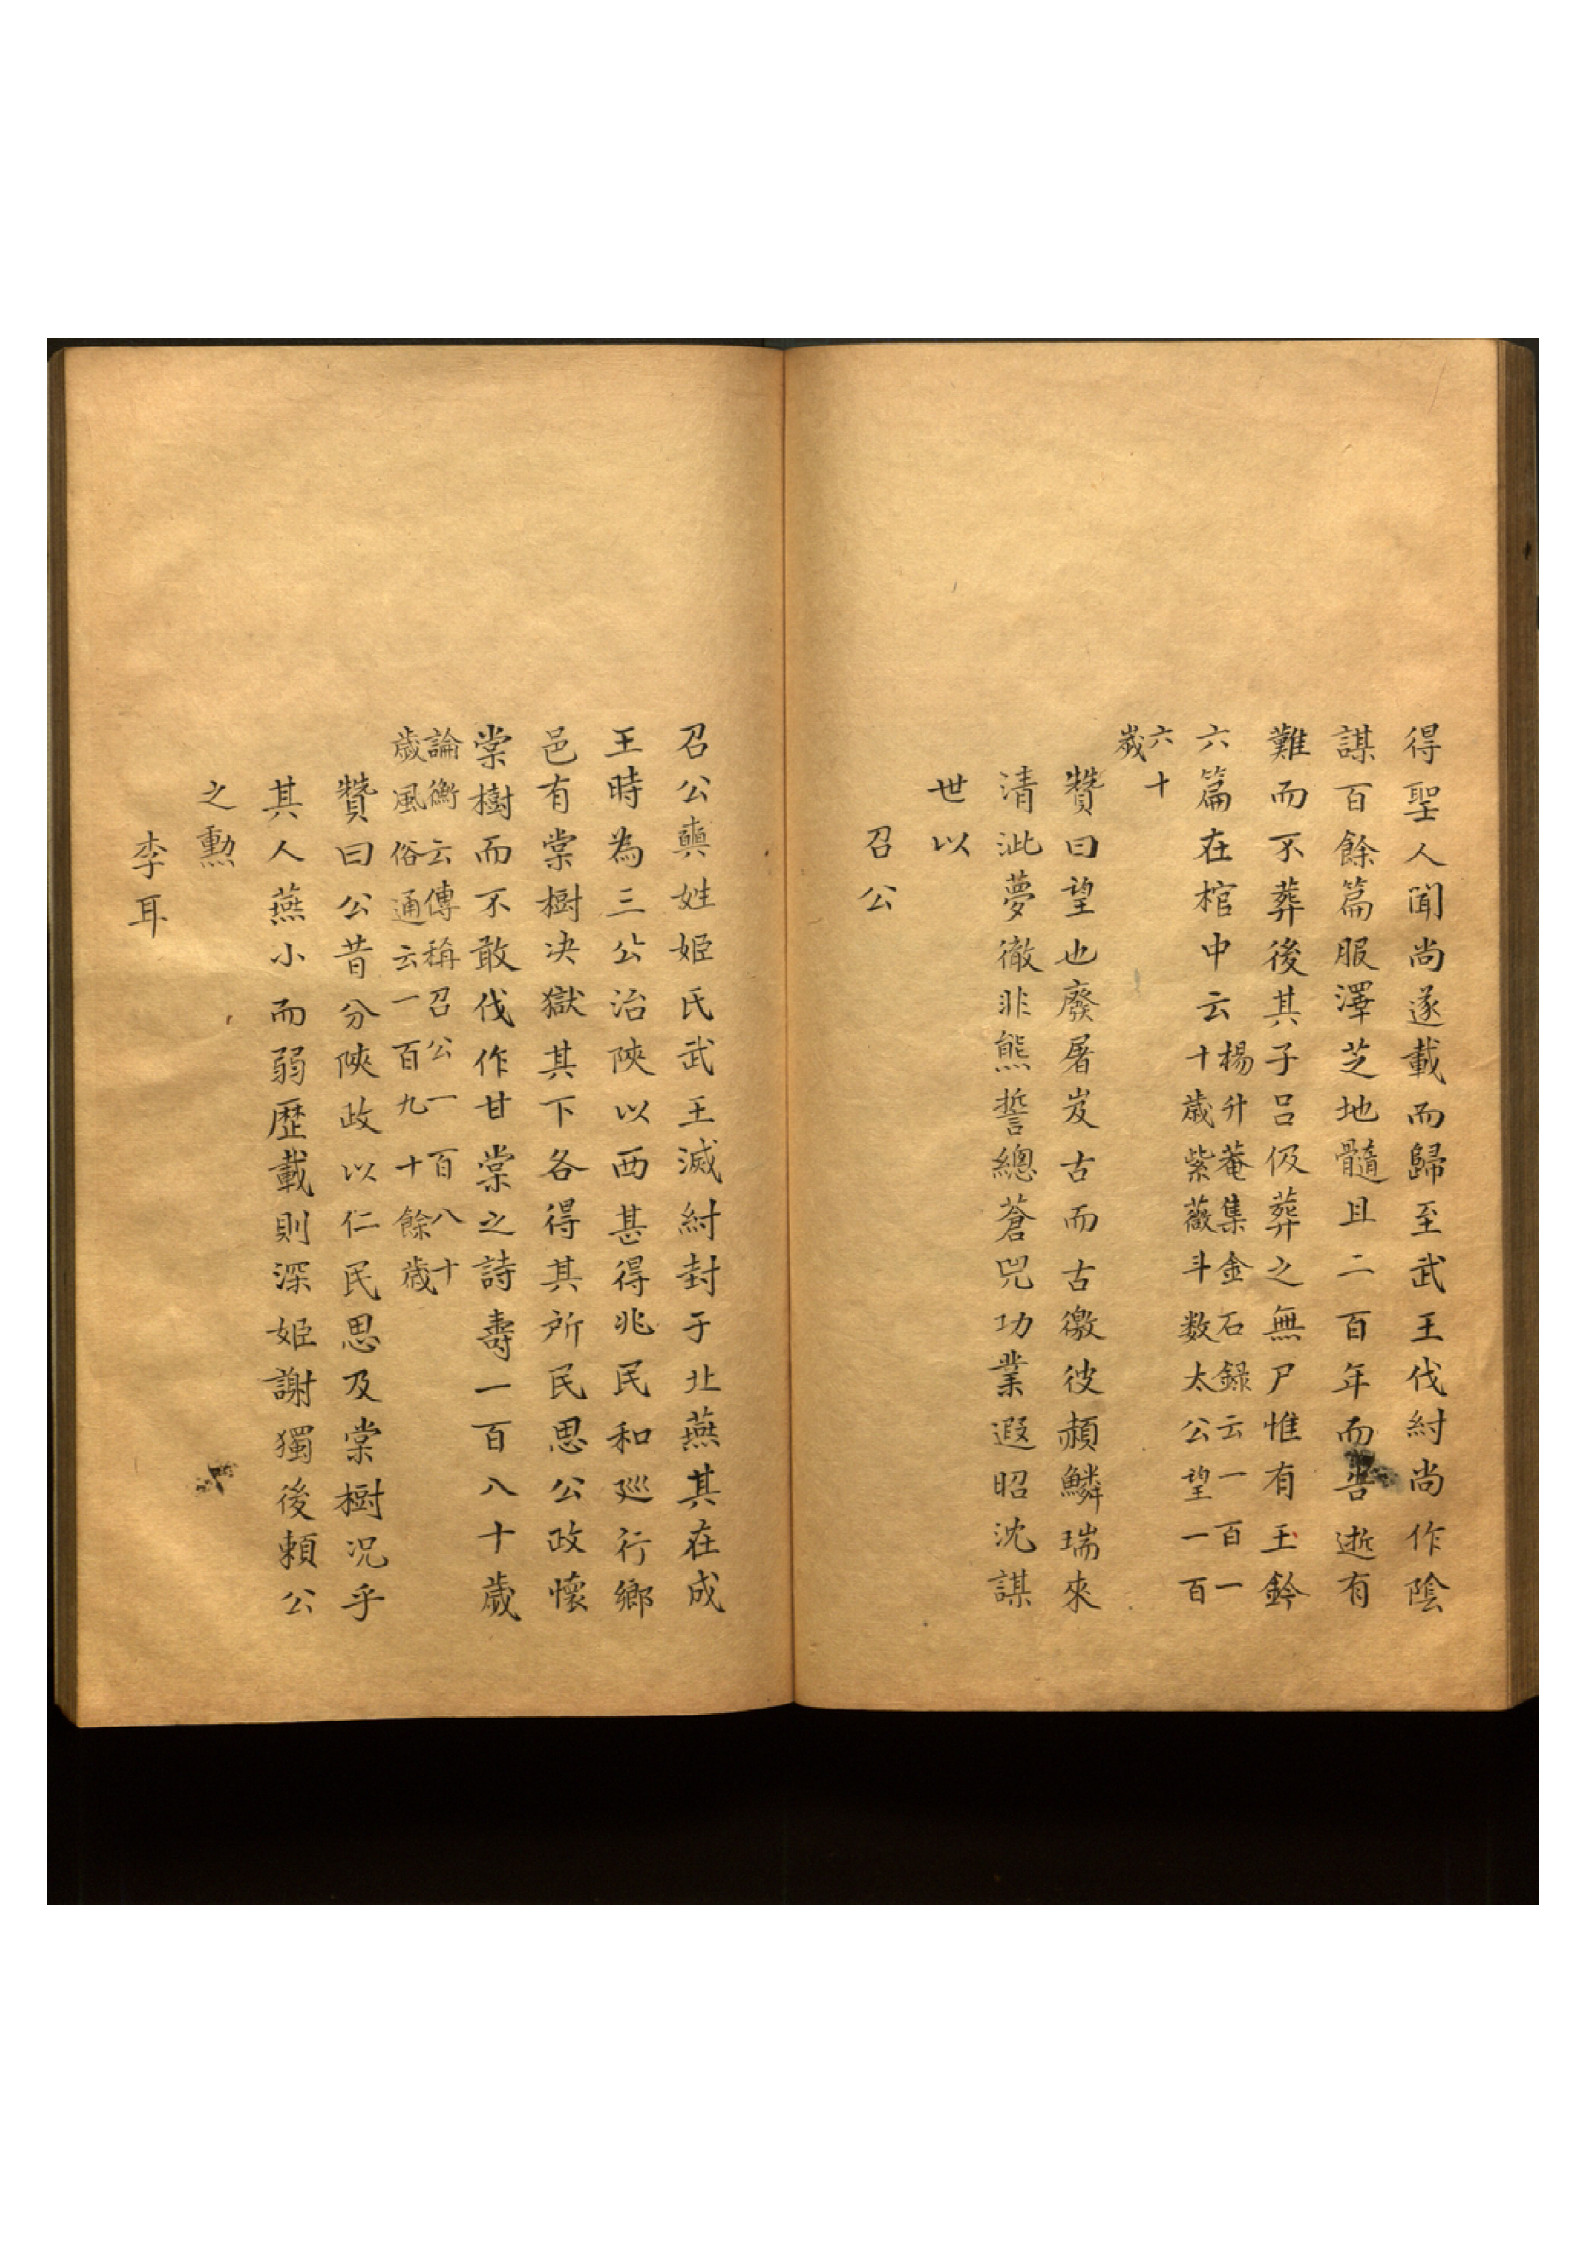 得聖人聞尚遂載而歸至武王伐紂尚作陰
謀百餘篇服澤芝地髓且二百年而告逝有
難而不葬後其子呂伋葬之無尸惟有玉鈐
六篇在棺中云
楊升菴集金石録云一百一
十歳紫薇斗数太公望一百
六十
歳
贊曰望也廢屠岌古而古徼彼赬鱗瑞來
清泚夢徹非熊誓總蒼兕功業遐昭沈謀
世以
召公
召公奭姓姬氏武王滅紂封于北燕其在成
王時為三公治陝以西甚得兆民和廵行鄉
邑有棠樹决獄其下各得其所民思公政懷
棠樹而不敢伐作甘棠之詩壽一百八十歳
論衡云傳稱召公一百八十
歳風俗通云一百九十餘歳
贊曰公昔分陝政以仁民思及棠樹况乎
其人燕小而弱歷載則深姫謝獨後頼公
之勲
李耳